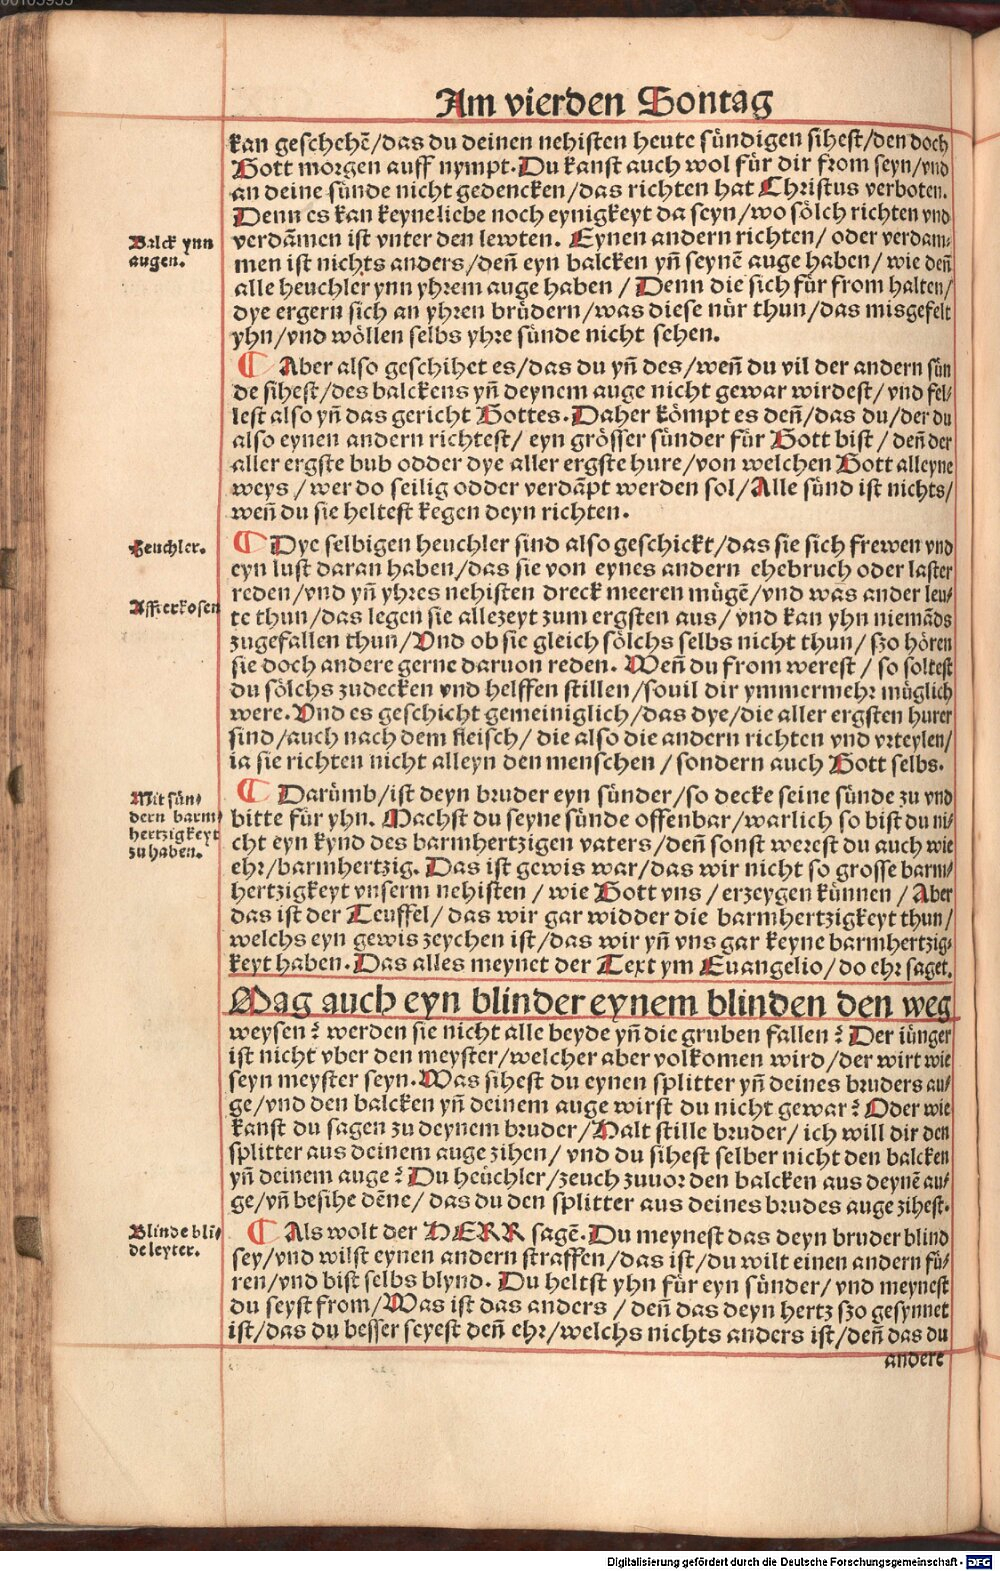 Am vierden Sontag
kan geschehẽ/das du deinen nehisten heute sündigen sihest/den doch
Gott morgen auff nympt. Du kanst auch wol für dir from seyn/vnd
an deine sünde nicht gedencken/das richten hat Christus verboten.
Denn es kan keyne liebe noch eynigkeyt da seyn/wo sölch richten vnd
Balck ynn
augen.
verdãmen ist vnter den lewten. Eynen andern richten/ oder verdam⸗
men ist nichts anders/deñ eyn balcken yñ seynẽ auge haben/ wie deñ
alle heuchler ynn yhrem auge haben / Denn die sich für from halten/
dye ergern sich an yhren brüdern/was diese nür thun/das misgefelt
yhn/vnd wöllen selbs yhre sünde nicht sehen.
¶ Aber also geschihet es/das du yñ des/weñ du vil der andern sün
de sihest/des balckens yñ deynem auge nicht gewar wirdest/ vnd fel⸗
lest also yñ das gericht Gottes. Daher kömpt es deñ/das du/der du
also eynen andern richtest/ eyn grösser sünder für Gott bist/ deñ der
aller ergste bub odder dye aller ergste hure/von welchen Gott alleyne
weys / wer do seilig odder verdãpt werden sol/Alle sünd ist nichts/
weñ du sie heltest kegen deyn richten.
Heuchler.
¶ Dye selbigen heuchler sind also geschickt/das sie sich frewen vnd
eyn lust daran haben/das sie von eynes andern ehebruch oder laster
reden/vnd yñ yhres nehisten dreck meeren mügẽ/vnd was ander leu⸗
Affterkosen
te thun/das legen sie allezeyt zum ergsten aus/ vnd kan yhn niemãds
zugefallen thun/Vnd ob sie gleich sölchs selbs nicht thun/ szo hören
sie doch andere gerne daruon reden. Weñ du from werest/ so soltest
du sölchs zudecken vnd helffen stillen/souil dir ymmermehr müglich
were. Vnd es geschicht gemeiniglich/das dye/die aller ergsten hurer
sind/auch nach dem fleisch/ die also die andern richten vnd vrteylen/
ia sie richten nicht alleyn den menschen/ sondern auch Gott selbs.
Mit sün⸗
dern barm
hertzigkeyt
zu haben.
¶ Darümb/ist deyn bruder eyn sünder/so decke seine sünde zu vnd
bitte für yhn. Machst du seyne sünde offenbar/warlich so bist du ni⸗
cht eyn kynd des barmhertzigen vaters/deñ sonst werest du auch wie
ehr/barmhertzig. Das ist gewis war/das wir nicht so grosse barm⸗
hertzigkeyt vnserm nehisten / wie Gott vns / erzeygen künnen / Aber
das ist der Teuffel/ das wir gar widder die barmhertzigkeyt thun/
welchs eyn gewis zeychen ist/das wir yñ vns gar keyne barmhertzig⸗
keyt haben. Das alles meynet der Text ym Euangelio/do ehr saget.
Mag auch eyn blinder eynem blinden den weg
weysen? werden sie nicht alle beyde yñ die gruben fallen? Der iünger
ist nicht vber den meyster/welcher aber volkomen wird/der wirt wie
seyn meyster seyn. Was sihest du eynen splitter yñ deines bruders au⸗
ge/vnd den balcken yñ deinem auge wirst du nicht gewar? Oder wie
kanst du sagen zu deynem bruder/Halt stille bruder/ ich will dir den
splitter aus deinem auge zihen/ vnd du sihest selber nicht den balcken
yñ deinem auge? Du heüchler/zeuch zuuor den balcken aus deynẽ au⸗
ge/vñ besihe dẽne/ das du den splitter aus deines brudes auge zihest.
Blinde bli⸗
de leyter.
¶ Als wolt der HERR sagẽ. Du meynest das deyn bruder blind
sey/vnd wilst eynen andern straffen/das ist/du wilt einen andern fü⸗
ren/vnd bist selbs blynd. Du heltst yhn für eyn sünder/ vnd meynest
du seyst from/Was ist das anders / deñ das deyn hertz szo gesynnet
ist/das du besser seyest deñ ehr/welchs nichts anders ist/deñ das du
andere
Digitalisierung gefördert durch die Deutsche Forschungsgemeinschaft - DFG